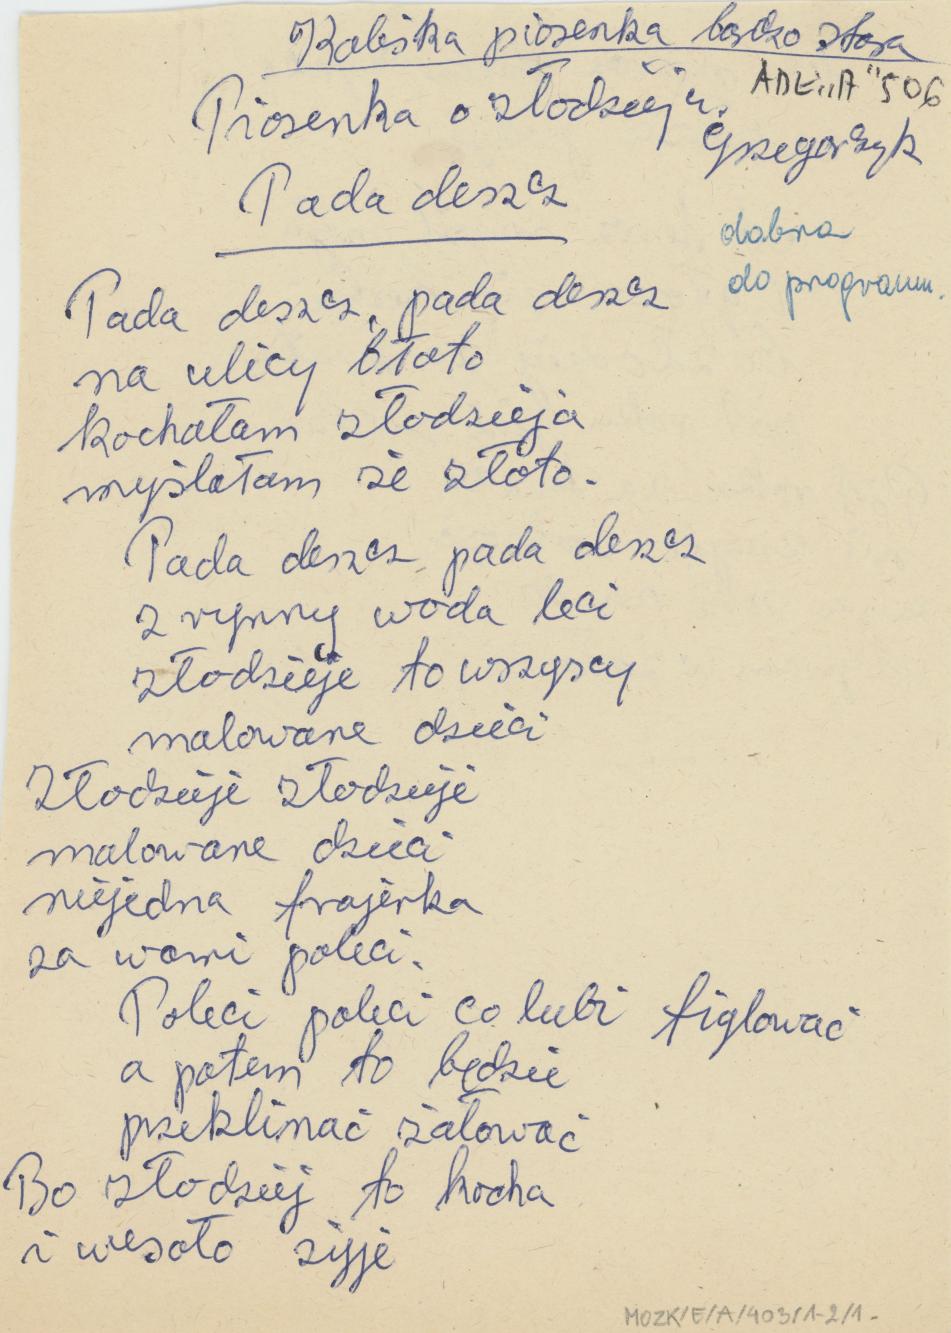 Kaliska piosenka bardzo stara
ADE „A" 506
Piosenka o złodzieju.
Grzegorczyk
Pada deszcz
dobra
do program.
Pada deszcz, pada deszcz
na ulicy błoto
kochałam złodzieja
myślałam że złoto.
Pada deszcz pada deszcz
z rynny woda leci
złodzieje to wszyscy
malowane dzieci
Złodzieje złodzieje
malowane dzieci
niejedna frajerka
za wami poleci.
Poleci poleci co lubi figlować
a potem to będzie
przeklinać żałować
Bo złodziej to kocha
i wesoło żyje
MOZK/E/A/403/1-2/1.